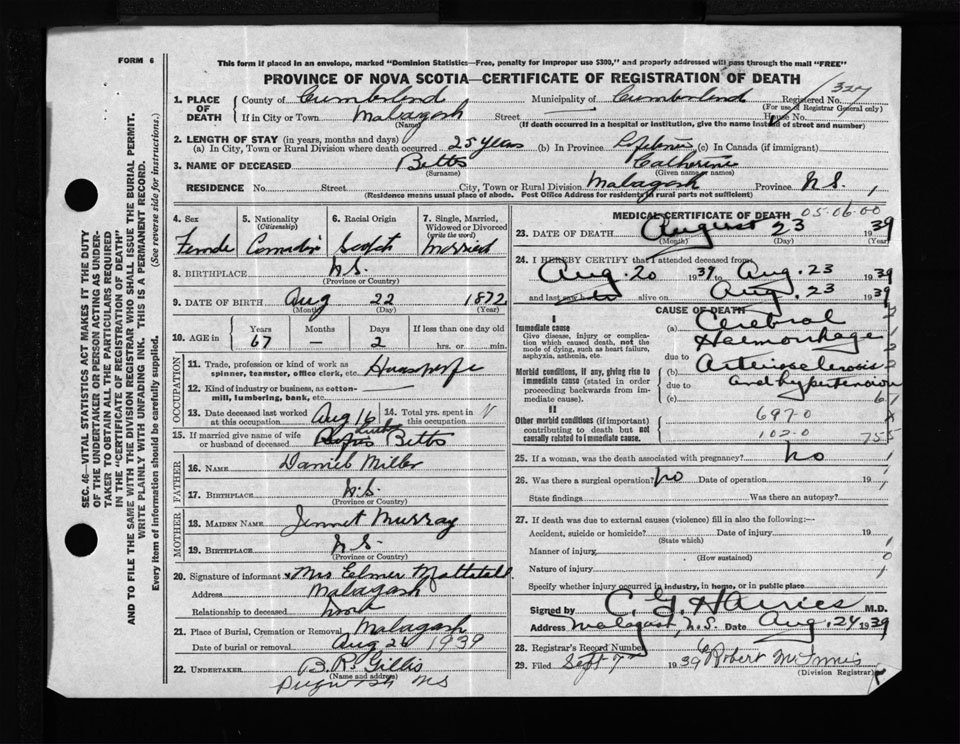 FORM 6
This form if placed in an envelope, marked "Dominion Statistics—Free, penalty for improper use $300," and properly addressed will pass through the mail "FREE"
PROVINCE OF NOVA SCOTIA—CERTIFICATE OF REGISTRATION OF DEATH
SEC. 46—VITAL STATISTICS ACT MAKES IT THE DUTY
OF THE UNDERTAKER OR PERSON ACTING AS UNDER-
TAKER TO OBTAIN ALL THE PARTICULARS REQUIRED
IN THE "CERTIFICATE OF REGISTRATION OF DEATH"
AND TO FILE THE SAME WITH THE DIVISION REGISTRAR WHO SHALL ISSUE THE BURIAL PERMIT.
WRITE PLAINLY WITH UNFADING INK. THIS IS A PERMANENT RECORD.
Every item of information should be carefully supplied. (See reverse side for instructions.)
1. PLACE OF DEATH County of Cumberland Municipality of Cumberland Registered No. 327
(For use of Registrar General only)
If in City or Town Malagash Street House No.
(Name) (If death occurred in a hospital or institution, give the name instead of street and number)
2. LENGTH OF STAY (in years, months and days)
(a) In City, Town or Rural Division where death occurred 25 years (b) In Province Lifetime (c) In Canada (if immigrant)
3. NAME OF DECEASED Betts Catherine
(Surname) (Given name or names)
RESIDENCE No. Street City, Town or Rural Division Malagash Province N.S.
(Residence means usual place of abode. Post Office Address for residence in rural parts not sufficient)
4. Sex 5. Nationality (Citizenship) 6. Racial Origin 7. Single, Married, Widowed or Divorced (write the word)
Female Canadian Scotch Married
8. BIRTHPLACE N.S.
(Province or Country)
9. DATE OF BIRTH Aug 22 1872
(Month) (Day) (Year)
10. AGE in Years Months Days If less than one day old
67 — 2 hrs. or min.
OCCUPATION
11. Trade, profession or kind of work as spinner, teamster, office clerk, etc. Housewife
12. Kind of industry or business, as cotton-mill, lumbering, bank, etc.
13. Date deceased last worked at this occupation Aug 16 14. Total yrs. spent in this occupation
15. If married give name of wife or husband of deceased Rufus Betts
FATHER
16. NAME Daniel Miller
17. BIRTHPLACE N.S.
(Province or Country)
MOTHER
18. MAIDEN NAME Jennet Murray
19. BIRTHPLACE N.S.
(Province or Country)
20. Signature of informant Mrs Elmer Mattatall
Address Malagash
Relationship to deceased
21. Place of Burial, Cremation or Removal Malagash
Date of burial or removal Aug 26 1939
22. UNDERTAKER B. R. Gillis
(Name and address)
Pugwash NS
MEDICAL CERTIFICATE OF DEATH 05-06-00
23. DATE OF DEATH August 23 1939
(Month) (Day) (Year)
24. I HEREBY CERTIFY that I attended deceased from
Aug. 20 1939 to Aug. 23 1939
and last saw h alive on Aug. 23 1939
CAUSE OF DEATH
I
Immediate cause
Give disease, injury or complication which caused death, not the mode of dying, such as heart failure, asphyxia, asthenia, etc.
(a) Cerebral Haemorrhage
due to
Morbid conditions, if any, giving rise to immediate cause (stated in order proceeding backwards from immediate cause).
(b) Arteriosclerosis
due to and hypertension
(c)
II
Other morbid conditions (if important) contributing to death but not causally related to immediate cause.
697-0
102-0 755
25. If a woman, was the death associated with pregnancy? No
26. Was there a surgical operation? No Date of operation 19
State findings Was there an autopsy?
27. If death was due to external causes (violence) fill in also the following:—
Accident, suicide or homicide? Date of injury 19
(State which)
Manner of injury
(How sustained)
Nature of injury
Specify whether injury occurred in industry, in home, or in public place
Signed by C. G. Harries M.D.
Address Malagash, N.S. Date Aug. 24 1939
28. Registrar's Record Number 6
29. Filed Sept 7 1939 Robert McInnis
(Division Registrar)